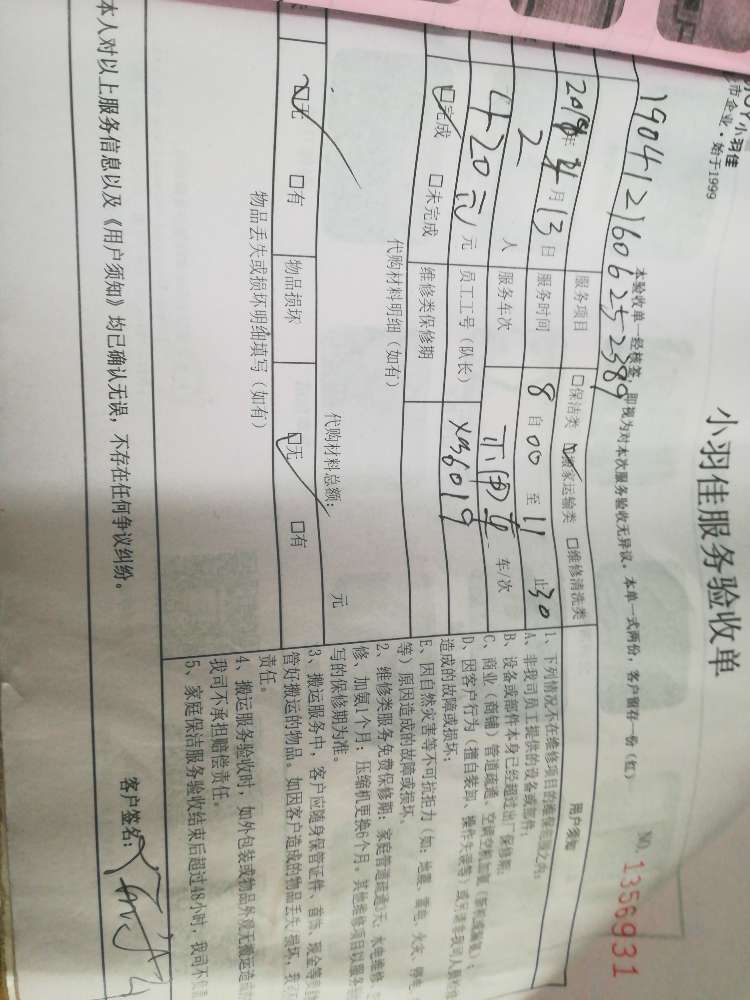 小羽佳
市企业·始于1999
小羽佳服务验收单
NO. 1356931
本验收单一经核签,即视为对本次服务验收无异议。本单一式两份,客户留存一份(红)
19041216062522389
服务项目 口保洁类 口搬家运输类 口维修清洗类
年 月13日 服务时间 8自00至11止30
2人 服务车次 车/次
420元元 员工工号(队长) XM6019
口完成 口未完成 维修类保修期
代购材料明细(如有)
代购材料总额: 元
口无 口有 物品损坏 口无 口有
物品丢失或损坏明细填写(如有)
用户须知
1、下列情况不在维修项目的维保范围之内:
A、非我司员工提供的设备或部件;
B、设备或部件本身已经超过出厂保修期;
C、商业(商铺)管道疏通、空调空机加氟
D、因客户行为(擅自装卸、操作失误等)
造成的故障或损坏;
E、因自然灾害等不可抗拒力(如:地震、雷电、火灾、停电
等)原因造成的故障或损坏。
2、维修类服务免费保修期:家庭管道疏通 天;水电维修、
修、加氨1个月;压缩机更换6个月。其他维修项目以服务
写的保修期为准。
3、搬运服务中,客户应随身保管证件、首饰、现金等
管好搬运的物品。如因客户造成的物品丢失、损坏,我
责任。
4、搬运服务验收时,如外包装或物品外观无搬运造成
我司不承担赔偿责任。
5、家庭保洁服务验收结束后超过48小时,我司不负责
本人对以上服务信息以及《用户须知》均已确认无误,不存在任何争议纠纷。
客户签名: